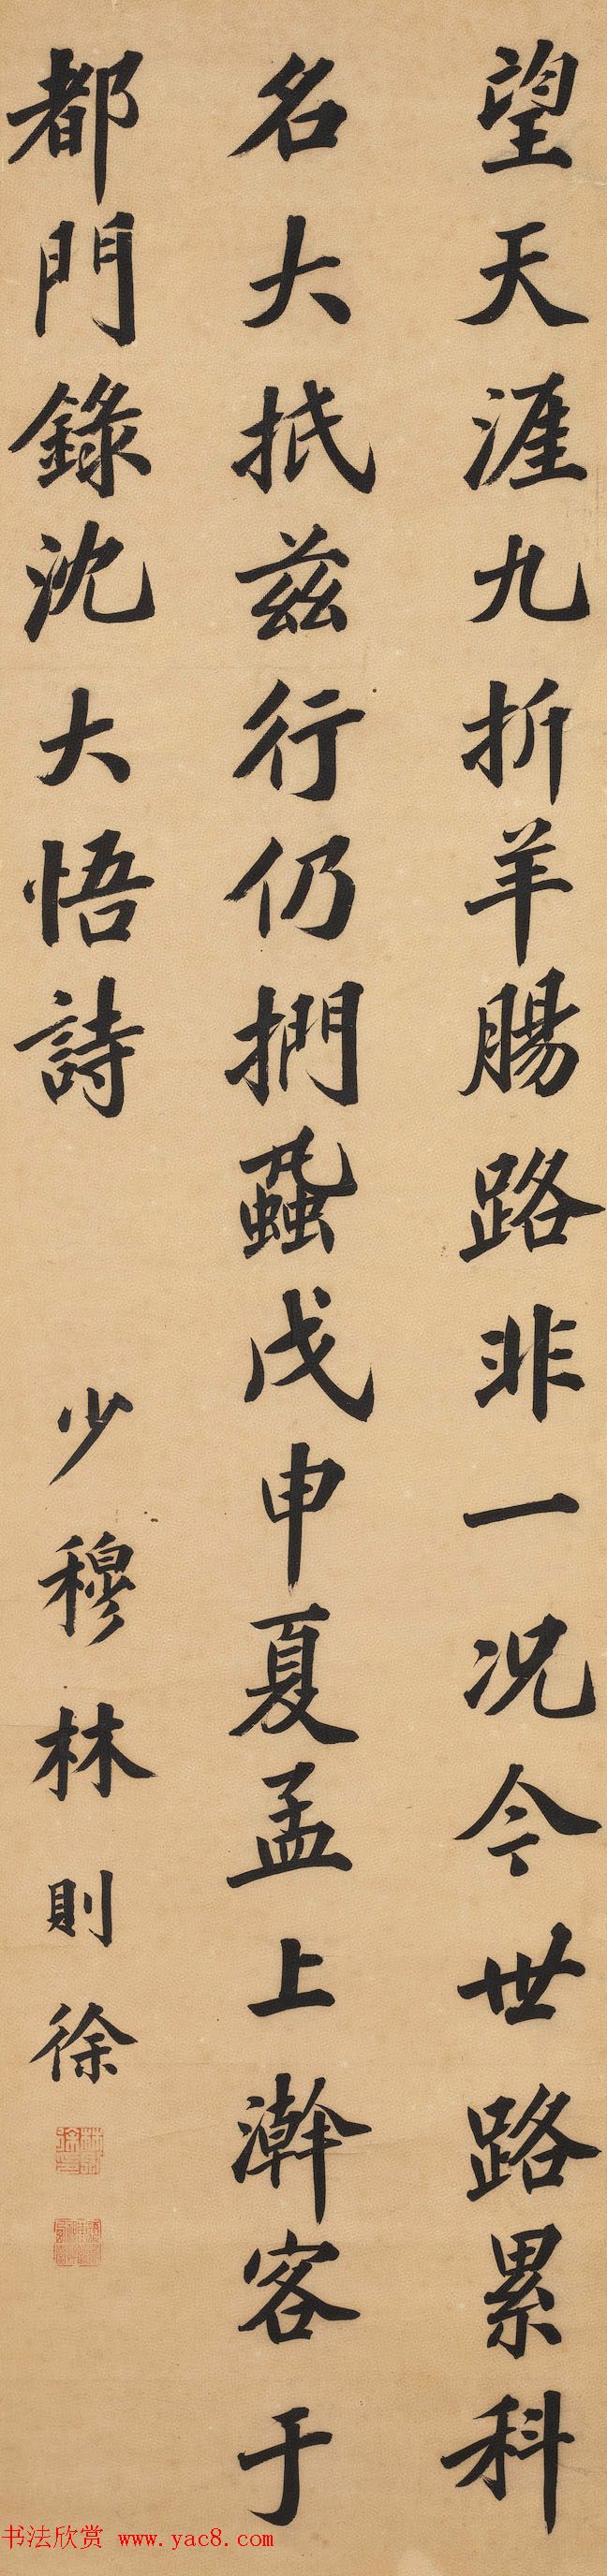 望天涯九折羊腸路非一况今世路累科
名大抵兹行仍捫蝨戊申夏孟上澣客于
都門錄沈大悟詩
少穆林則徐
书法欣赏 www.yac8.com